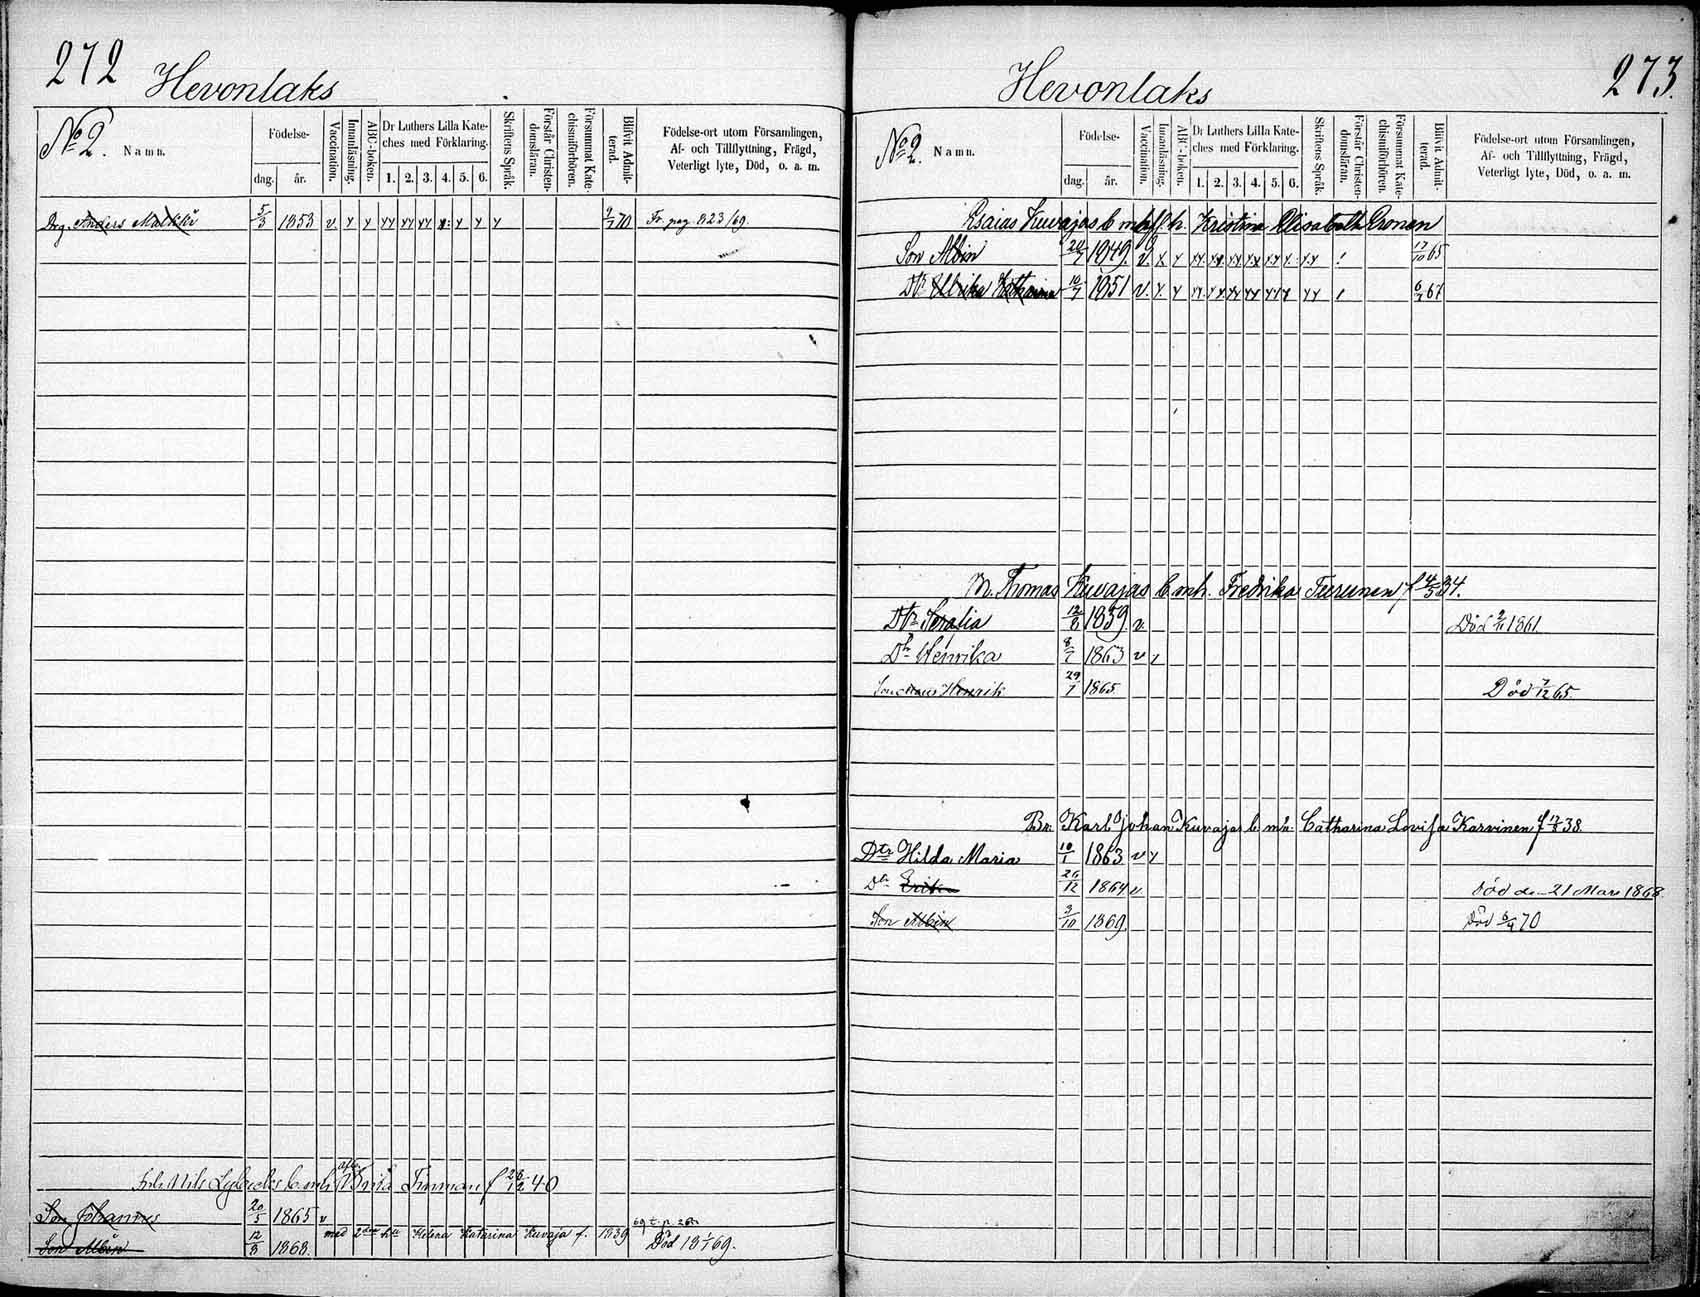 272 Hevonlaks
No 2.
Namn.
Födelse-
dag. år.
Vaccination.
Innanläsning.
ABC-boken.
Dr Luthers Lilla Kate-
ches med Förklaring.
1. 2. 3. 4. 5. 6.
Skriftens Språk.
Förstår Christen-
domsläran.
Försummat Kate-
chismiförhören.
Blifvit Admit-
terad.
Födelse-ort utom Församlingen,
Af- och Tillflyttning, Frägd,
Veterligt lyte, Död, o. a. m.
Drg. Anders Malkki 5/3 1853 v. y y yy yy yy y y y y 9/7 70 Fr. pag. 823/69.
Nils b. mh Finman f 28/12 40
Son Johannes 20/5 1865 v
med 2dra Helena Katarina Kuvaja f. 1839
Son Albin 12/8 1868. Död 18 1/69.
Hevonlaks 273.
No 2.
Namn.
Födelse-
dag. år.
Vaccination.
Innanläsning.
ABC-boken.
Dr Luthers Lilla Kate-
ches med Förklaring.
1. 2. 3. 4. 5. 6.
Skriftens Språk.
Förstår Christen-
domsläran.
Försummat Kate-
chismiförhören.
Blifvit Admit-
terad.
Födelse-ort utom Församlingen,
Af- och Tillflyttning, Frägd,
Veterligt lyte, Död, o. a. m.
Esaias Kuvajas b m Kristina Elisabeth Cronen
Son Albin 1849. v. 17/10 65
Dtr Ulrika Katharina 10/7 1851 v. 6/7 67
Thomas Kuvajas b. mh. Fredrika Turunen f 4/5 34.
Dtr Seralia 12/8 1859 v. Död 2/11 1861.
Dtr Henrika 8/7 1863 v
Son Claus Henrik 29/7 1865 Död 7/12 65.
Br. Karl Johan Kuvajas b mh. Catharina Lovisa Karvinen f 38.
Dtr Hilda Maria 10/1 1863 v y
Dtr Erika 26/12 1864 v. Död den 21 Mars 1868
Son Albin 3/10 1869. Död 6/4 70